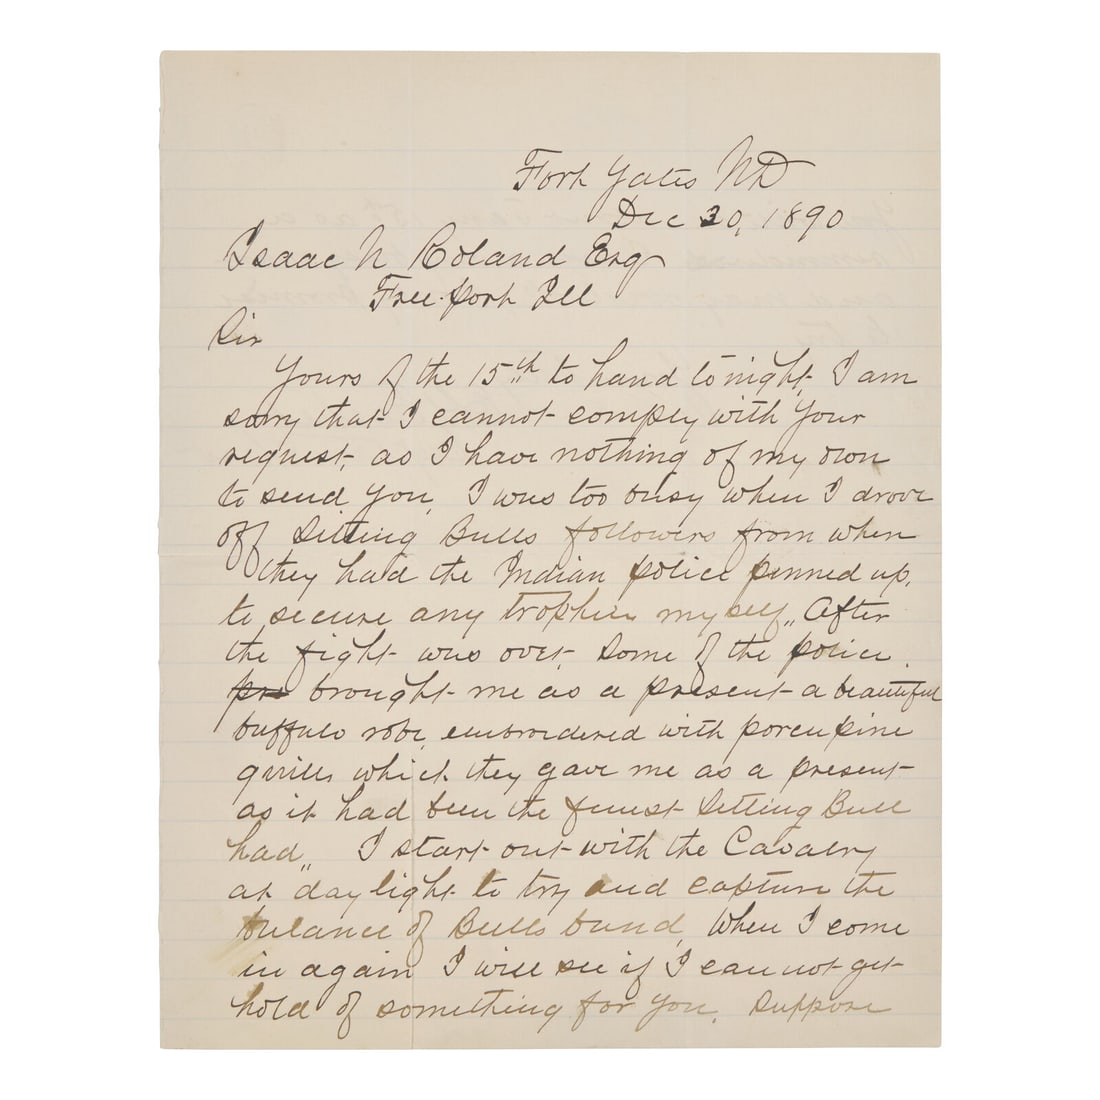 Fort Yates ND
Dec 20, 1890
Isaac N Roland Esq
Freeport Ill
Sir
Yours of the 15th to hand tonight, I am
sorry that I cannot comply with your
request, as I have nothing of my own
to send you, I was too busy when I drove
off Sitting Bulls followers from when
they had the Indian police penned up,
to secure any trophies myself,, After
the fight was over, some of the police
pre brought me as a present a beautiful
buffalo robe, embroidered with porcupine
quills which they gave me as a present
as it had been the finest Sitting Bull
had,, I start out with the Cavalry
at daylight to try and capture the
balance of Bulls band, When I come
in again I will see if I can not get
hold of something for you, Suppose